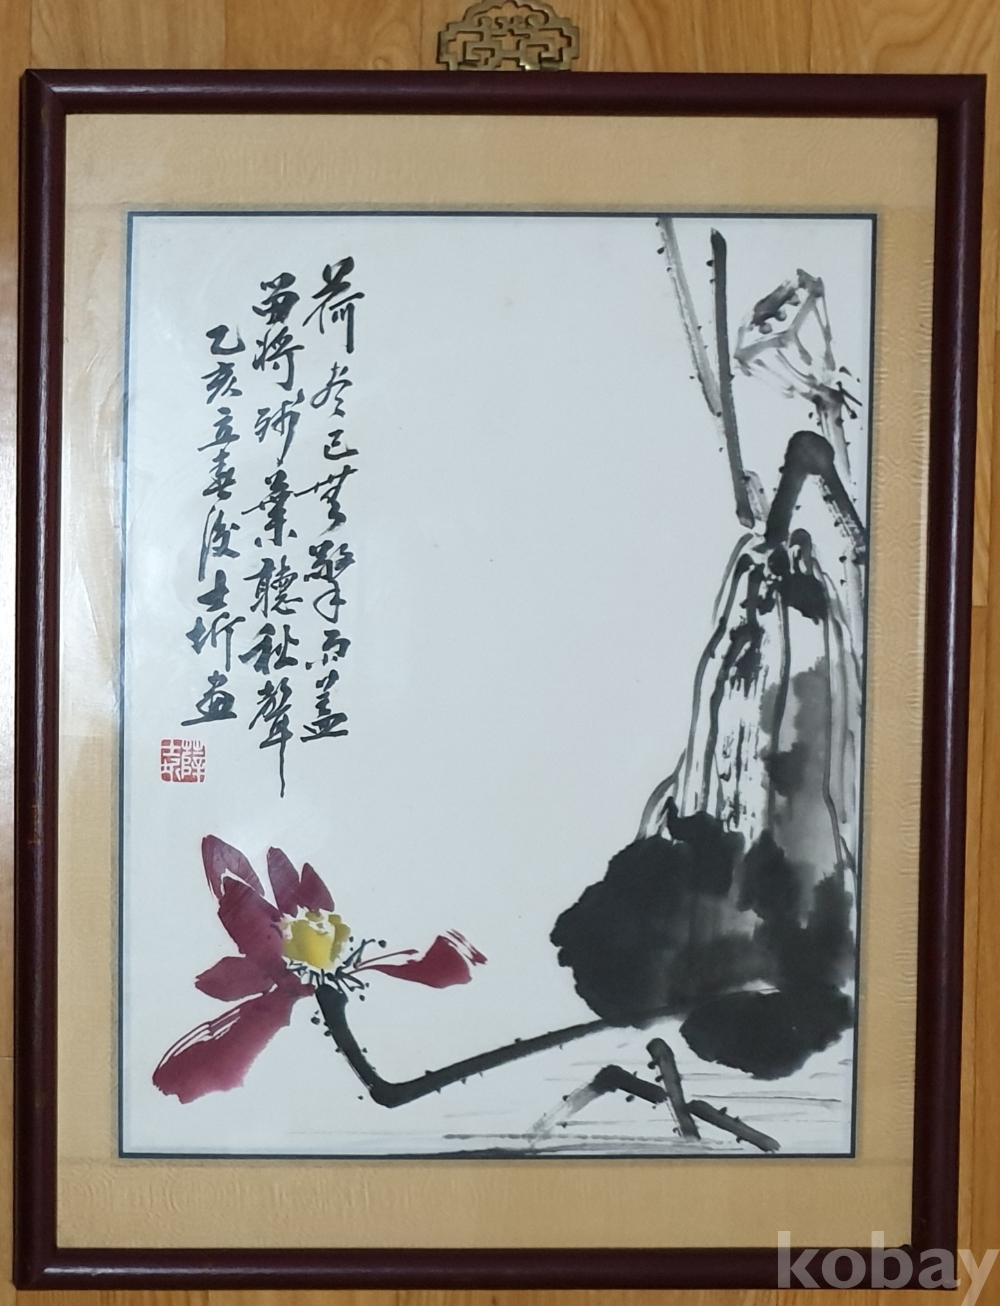 荷尽已無擎雨蓋
留將殘葉聽秋聲
乙亥立春後士圻畫
薛士圻
kobay